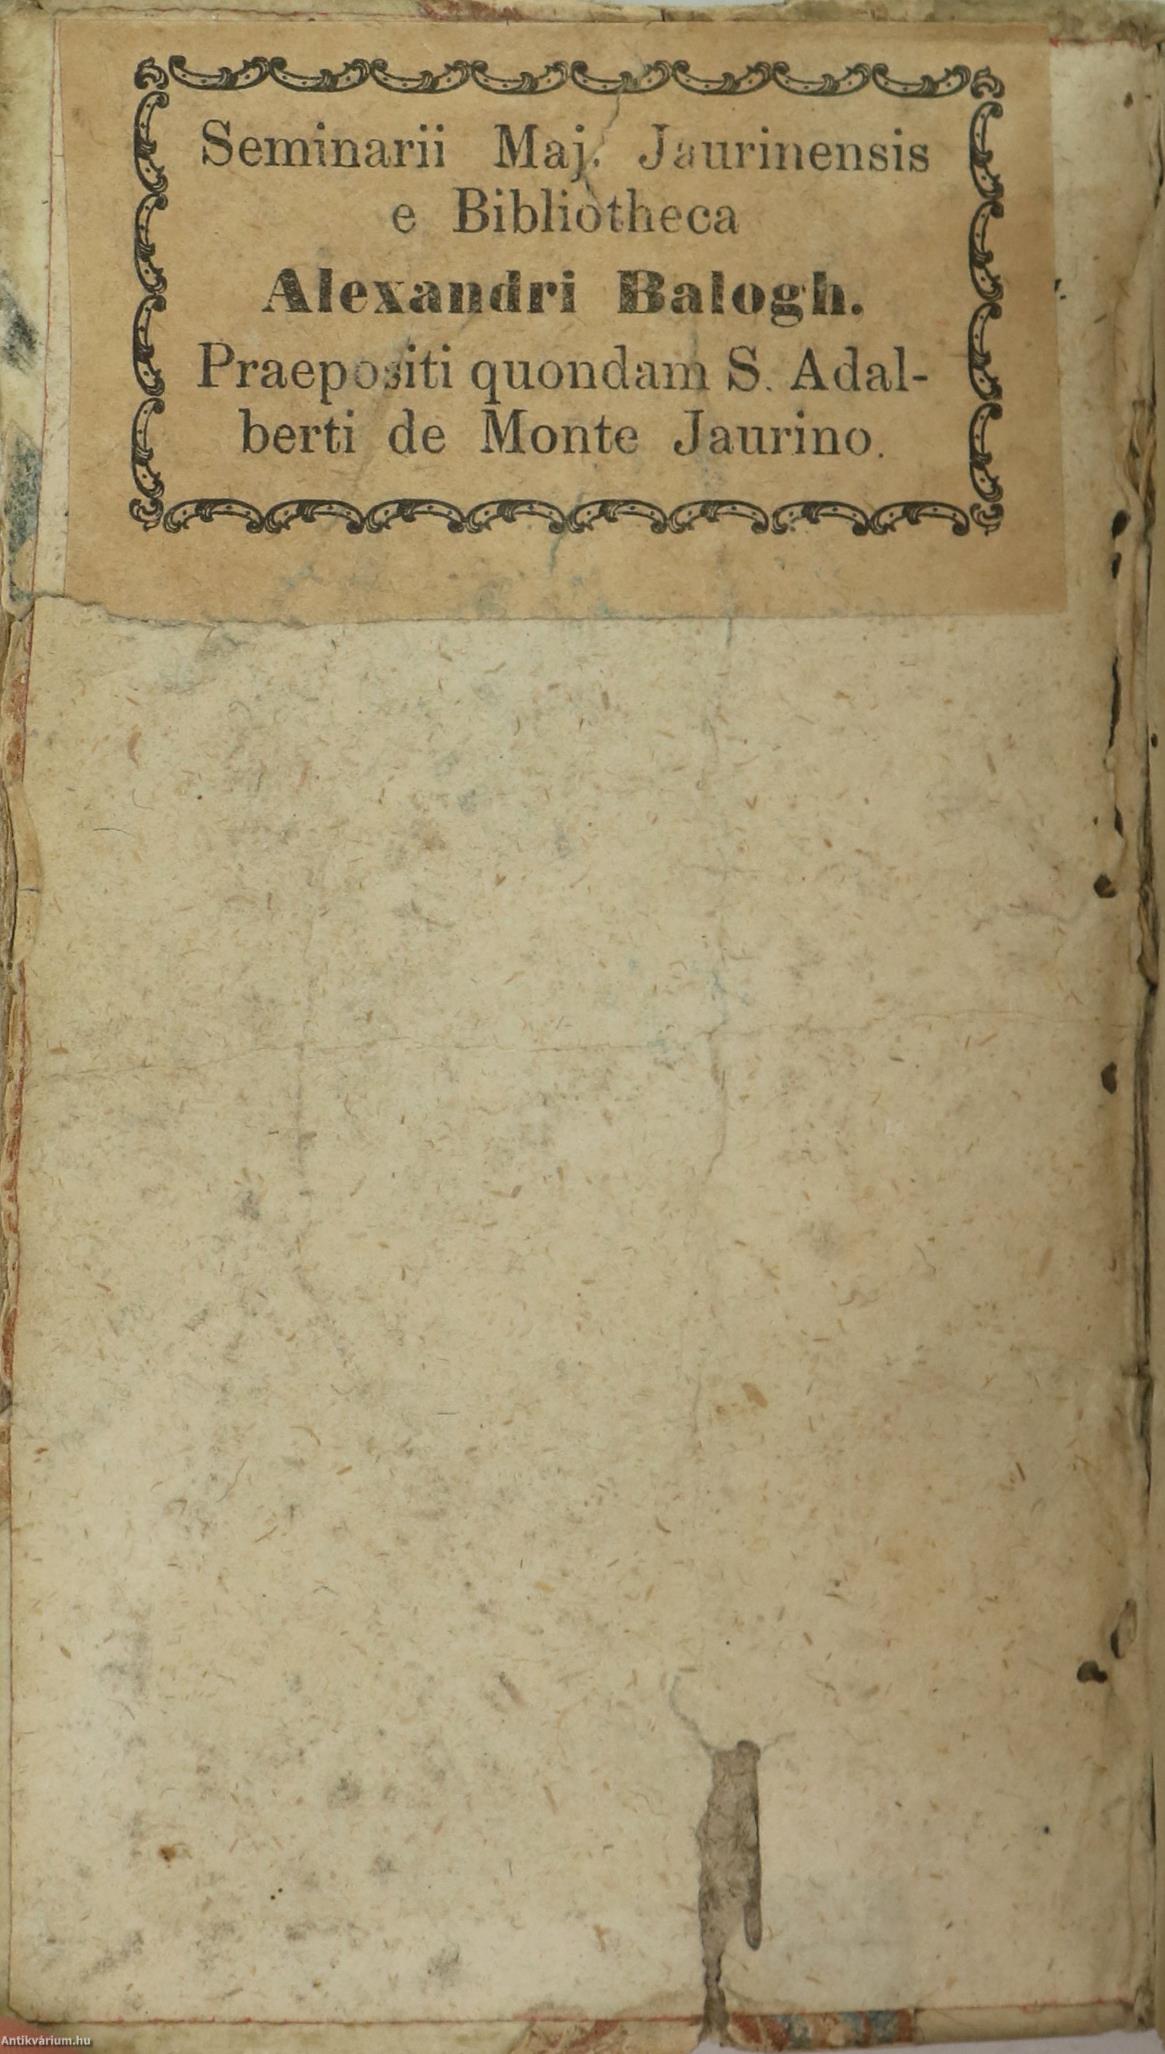 Seminarii Maj. Jaurinensis
e Bibliotheca
Alexandri Balogh.
Praepositi quondam S. Adal-
berti de Monte Jaurino.
Antikvárium.hu